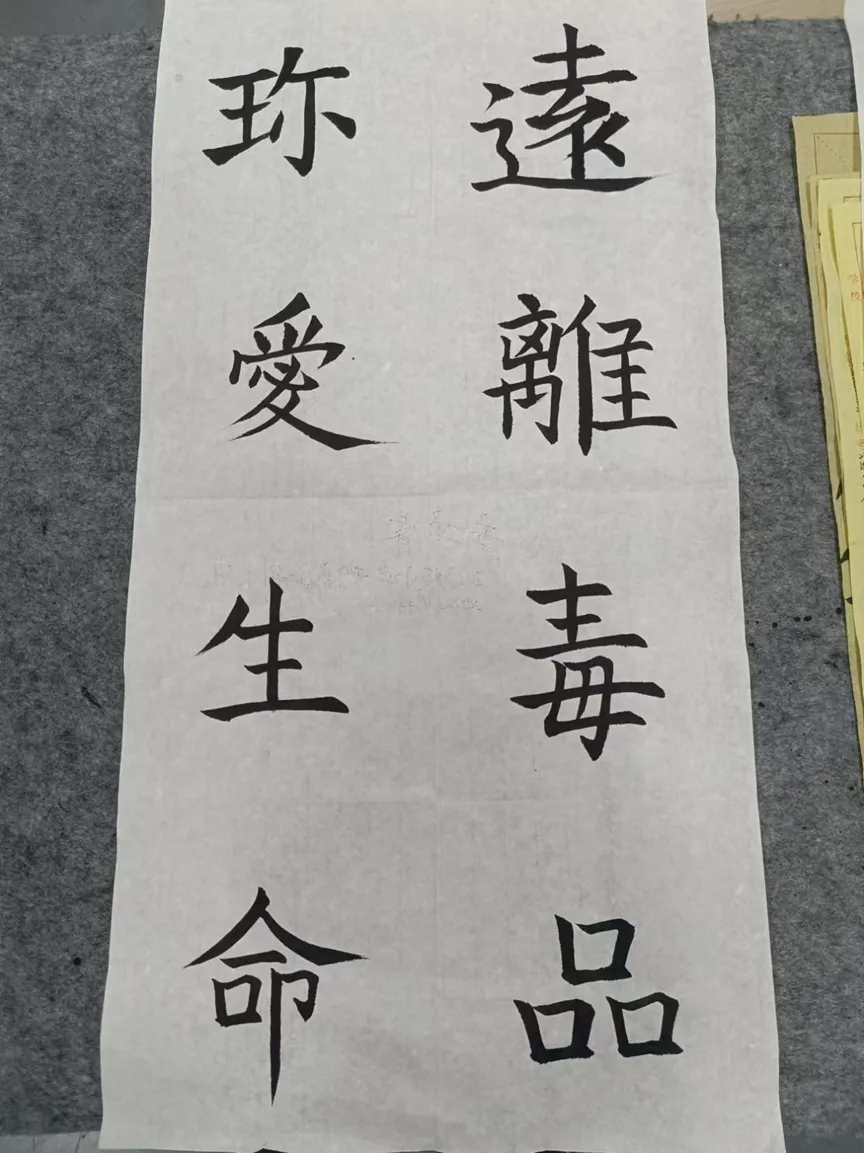 遠離毒品
珎愛生命